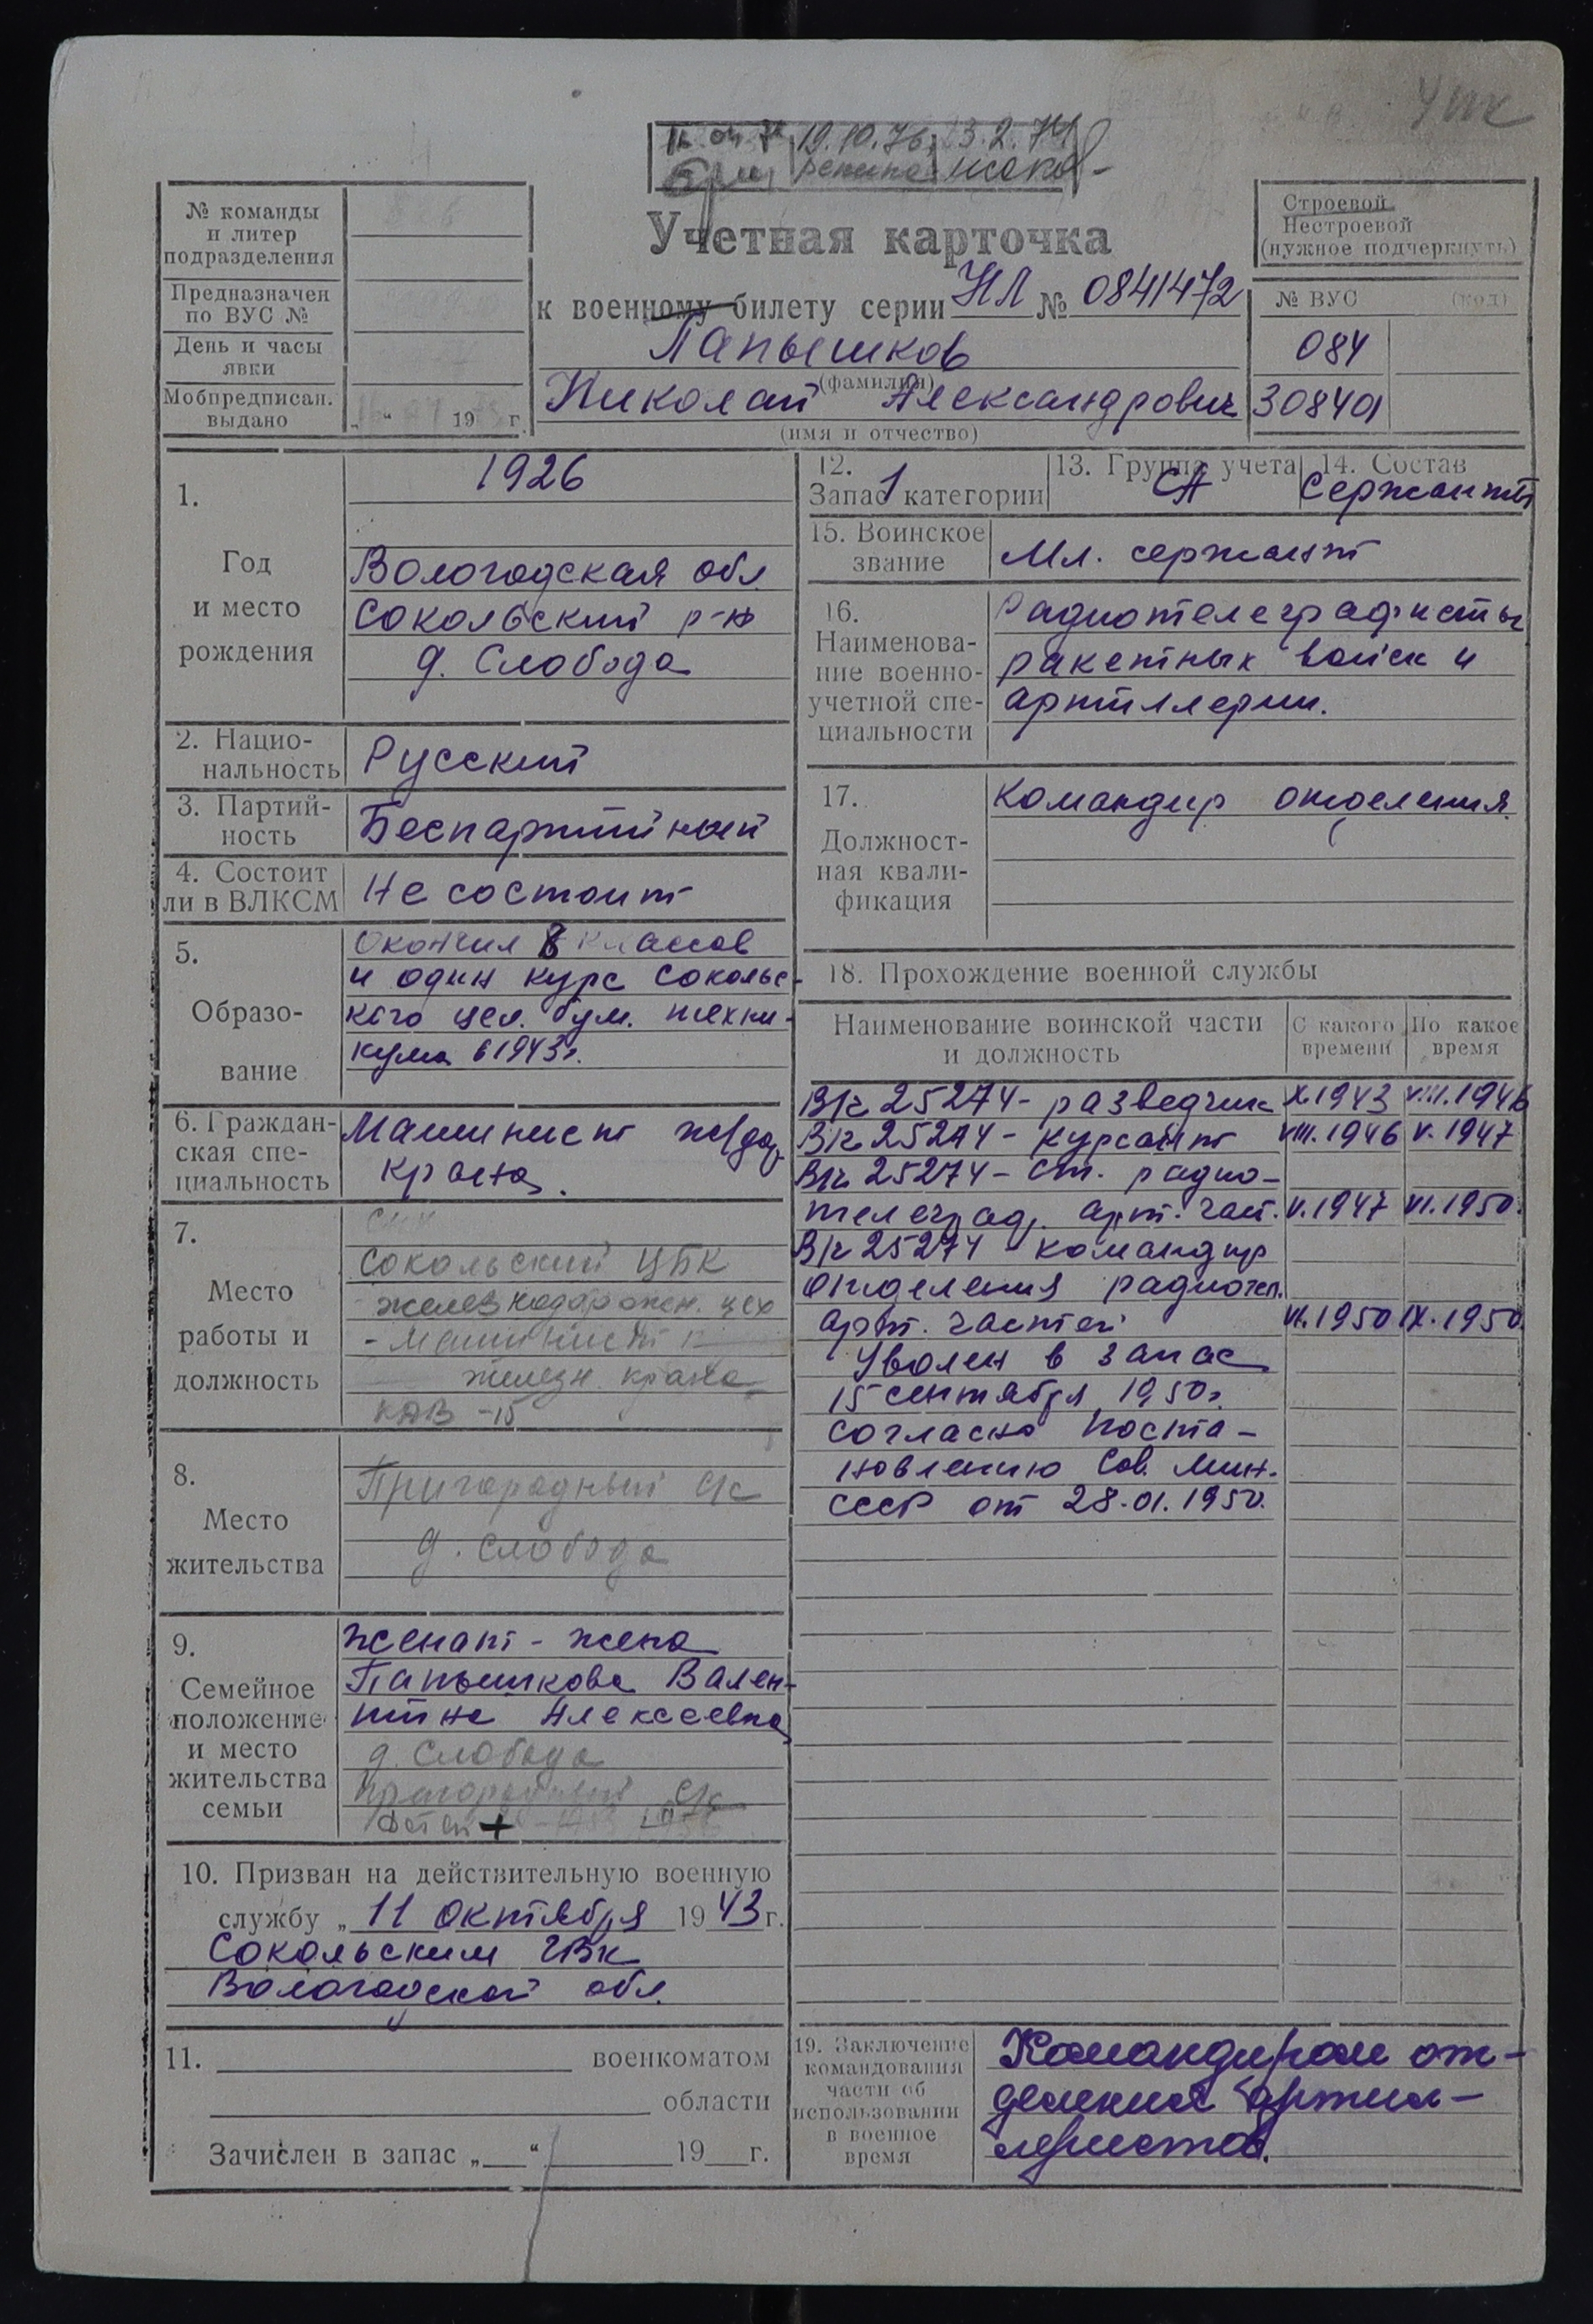 УПК
19.10.76. 3.2.74
Учетная карточка
к военному билету серии НЛ № 0841472
Папышков
(фамилия)
Николай Александрович
(имя и отчество)
№ команды
и литер
подразделения
Предназначен
по ВУС №
День и часы
явки
Мобпредписан.
выдано
19 г.
Строевой
Нестроевой
(нужное подчеркнуть)
№ ВУС (код)
084
308401
1.
Год
и место
рождения
1926
Вологодская обл.
Сокольский р-н
д. Слобода
2. Нацио-
нальность
Русский
3. Партий-
ность
Беспартийный
4. Состоит
ли в ВЛКСМ
Не состоит
5.
Образо-
вание
Окончил 8 классов
и один курс Сокольс-
кого цел. бум. техни-
кума в 1943г.
6. Граждан-
ская спе-
циальность
Машинист ж/дор.
крана.
7.
Место
работы и
должность
Сокольский ЦБК
железнодорожн. цех
- машинист
железн. крана
8.
Место
жительства
Пригородный с/с
д. Слобода
9.
Семейное
положение
и место
жительства
семьи
женат - жена
Папышкова Вален-
тина Алексеевна
д. Слобода
Пригородный с/с
10. Призван на действительную военную
службу „11 октября 1943 г.
Сокольским ГВК
Вологодской обл.
11. военкоматом
области
Зачислен в запас „ “ 19 г.
12.
Запас 1 категории
13. Группа учета
СА
14. Состав
Сержанты
15. Воинское
звание
Мл. сержант
16.
Наименова-
ние военно-
учетной спе-
циальности
Радиотелеграфисты
ракетных войск и
артиллерии.
17.
Должност-
ная квали-
фикация
Командир отделения.
18. Прохождение военной службы
Наименование воинской части
и должность
С какого
времени
По какое
время
В/ч 25274 - разведчик X.1943 VIII.1946
В/ч 25274 - курсант VIII.1946 V.1947
В/ч 25274 - ст. радио-
телеграф. арт. част. V.1947 VI.1950.
В/ч 25274 - командир
отделения радиотел.
арт. частей VI.1950 IX.1950.
Уволен в запас
15 сентября 1950г.
согласно Поста-
новлению Сов. Мин.
СССР от 28.01.1950.
19. Заключение
командования
части об
использовании
в военное
время
Командиром от-
деления артил-
леристов.